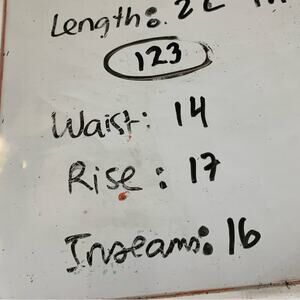 Length: 22
123
Waist: 14
Rise: 17
Inseams: 16